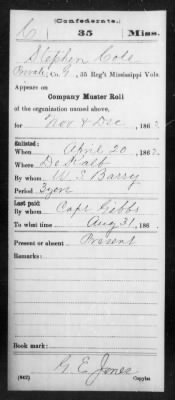 (Confederate.)
C 35 Miss.
Stephen Cole
Private, Co. G, 35 Reg't Mississippi Vols.
Appears on
Company Muster Roll
of the organization named above,
for Nov & Dec, 186 .
Enlisted:
When April 20, 186 .
Where De Kalb
By whom W. E. Barry
Period 3 years
Last paid:
By whom Capt Gibbs
To what time Aug 31, 186 .
Present or absent Present
Remarks:
Book mark:
G. E. Jones
(642) Copyist.